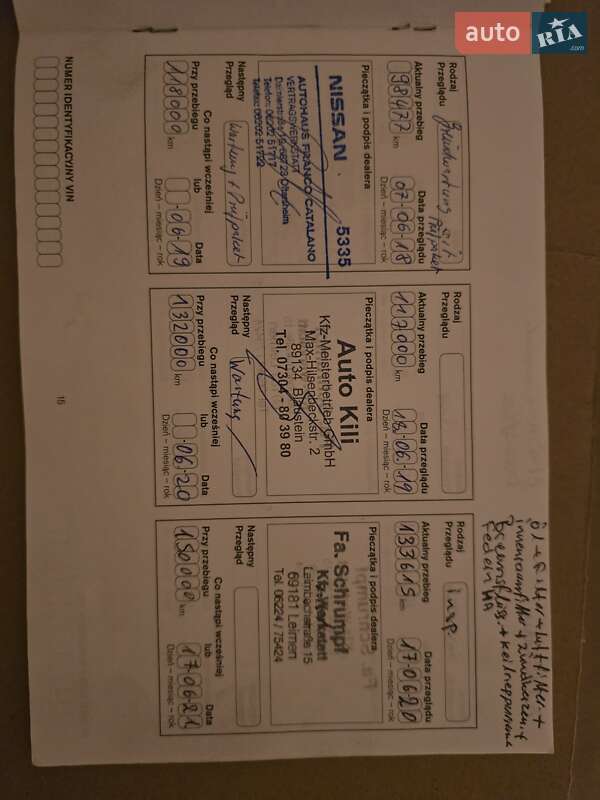 auto RIA.com
Rodzaj
Przeglądu
Grundwartung mit
Prüfpaket
Aktualny przebieg
Data przeglądu
98477 km
07·06·18
Dzień – miesiąc – rok
Pieczątka i podpis dealera
NISSAN
5335
AUTOHAUS FRANCO CATALANO
VERTRAGSWERKSTATT
68723 Oftersheim
Telefon: 06202 51717
Telefax: 06202 51722
Następny
Przegląd
Wartung + Prüfpaket
Co nastąpi wcześniej
Przy przebiegu
lub
Data
118000 km
·06·19
Dzień – miesiąc – rok
NUMER IDENTYFIKACYJNY VIN
Rodzaj
Przeglądu
Aktualny przebieg
Data przeglądu
117000 km
13·06·19
Dzień – miesiąc – rok
Pieczątka i podpis dealera
Auto Kili
Kfz-Meisterbetrieb GmbH
Max-Hilsenbeckstr. 2
89134 Blaustein
Tel. 07304 - 80 39 80
Następny
Przegląd
Wartung
Co nastąpi wcześniej
Przy przebiegu
lub
Data
132000 km
·06·20
Dzień – miesiąc – rok
Rodzaj
Przeglądu
insp
Aktualny przebieg
Data przeglądu
133615 km
17·06·20
Dzień – miesiąc – rok
Pieczątka i podpis dealera
Fa. Schrumpf
Kfz-Werkstatt
Leimbachstraße 15
69181 Leimen
Tel. 06224 / 75424
Następny
Przegląd
Co nastąpi wcześniej
Przy przebiegu
lub
Data
150000 km
17·06·21
Dzień – miesiąc – rok
Öl + Filter + Luftfilter +
innenraumfilter + Zündkerzen +
Bremsflüss. + Keilrippenriemen
Federn HA
15